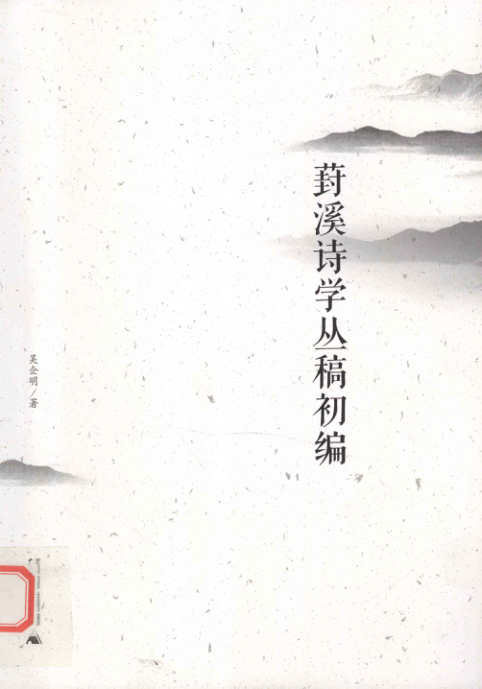 葑溪诗学丛稿初编
吴企明／著